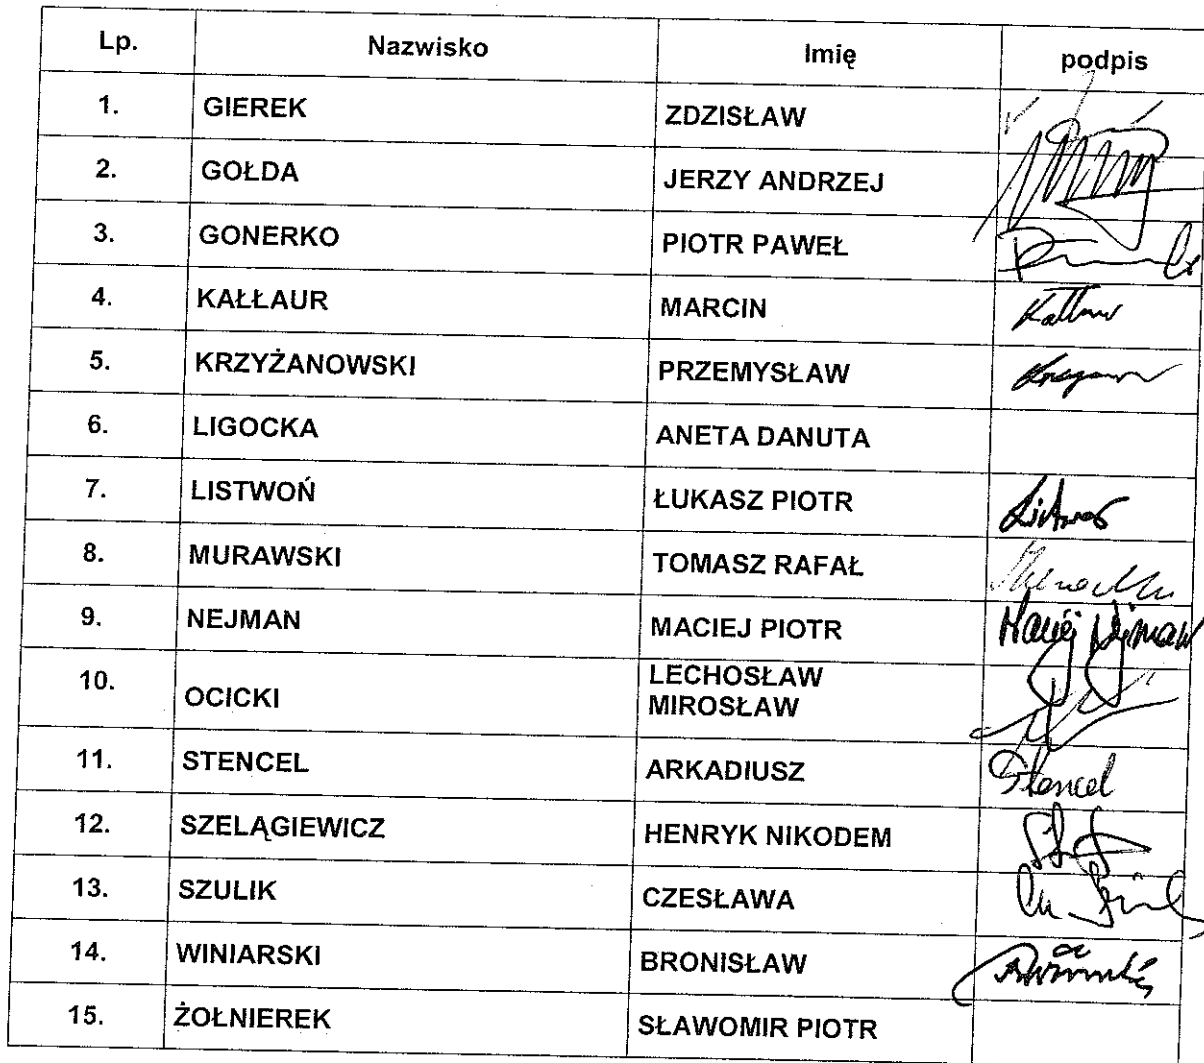 Lp. Nazwisko Imię podpis
1. GIEREK ZDZISŁAW
2. GOŁDA JERZY ANDRZEJ
3. GONERKO PIOTR PAWEŁ
4. KAŁŁAUR MARCIN
5. KRZYŻANOWSKI PRZEMYSŁAW
6. LIGOCKA ANETA DANUTA
7. LISTWOŃ ŁUKASZ PIOTR
8. MURAWSKI TOMASZ RAFAŁ
9. NEJMAN MACIEJ PIOTR Maciej Nejman
10. OCICKI LECHOSŁAW
MIROSŁAW
11. STENCEL ARKADIUSZ Stencel
12. SZELĄGIEWICZ HENRYK NIKODEM
13. SZULIK CZESŁAWA
14. WINIARSKI BRONISŁAW
15. ŻOŁNIEREK SŁAWOMIR PIOTR